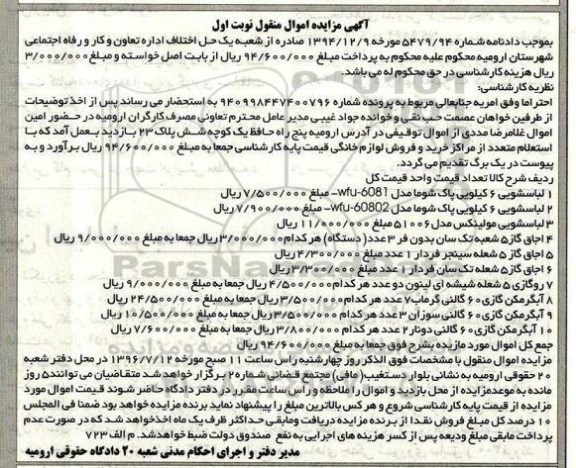 آگهی مزایده اموال منقول نوبت اول
بموجب دادنامه شماره ۵۴۷۹/۹۴ مورخه ۱۳۹۴/۱۲/۹ صادره از شعبه یک حل اختلاف اداره تعاون و کار و رفاه اجتماعی
شهرستان ارومیه محکوم علیه محکوم به پرداخت مبلغ ۹۴/۶۰۰/۰۰۰ ریال از بابت اصل خواسته و مبلغ ۳/۰۰۰/۰۰۰
ریال هزینه کارشناسی در حق محکوم له می باشد.
نظریه کارشناسی:
احتراما وفق امریه جنابعالی مربوط به پرونده شماره ۹۴۰۹۹۸۴۴۷۴۰۰۷۹۶ به استحضار می رساند پس از اخذ توضیحات
از طرفین خواهان عصمت حب نقی و خوانده جواد غیبی مدیر عامل محترم تعاونی مصرف کارگران ارومیه در حضور امین
اموال غلامرضا مددی از اموال توقیفی در آدرس ارومیه پنج راه حافظ یک کوچه شش پلاک ۲۳ بازدید بعمل آمد که با
استعلام متعدد از مراکز خرید و فروش لوازم خانگی قیمت پایه کارشناسی جمعا به مبلغ ۹۴/۶۰۰/۰۰۰ ریال برآورد و به
پیوست در یک برگ تقدیم می گردد.
ردیف شرح کالا تعداد قیمت واحد قیمت کل
۱ لباسشویی ۶ کیلویی پاک شوما مدل wfu-6081- مبلغ ۷/۵۰۰/۰۰۰ ریال
۲ لباسشویی ۶ کیلویی پاک شوما مدل wfu-60802- مبلغ ۷/۹۰۰/۰۰۰ ریال
۳ لباسشویی مولینکس مدل ۵۱۰۰۶ مبلغ ۱۱/۰۰۰/۰۰۰ ریال
۴ اجاق گاز ۵ شعبه تک سان بدون فر ۳ عدد (دستگاه) هر کدام ۳/۰۰۰/۰۰۰ ریال جمعا به مبلغ ۹/۰۰۰/۰۰۰ ریال
۵ اجاق گاز ۵ شعله سینجر فردار ۱ عدد مبلغ ۴/۳۰۰/۰۰۰ ریال
۶ اجاق گاز ۵ شعله تک سان فردار ۱ عدد مبلغ ۳/۳۰۰/۰۰۰ ریال
۷ روگازی ۵ شعله شیشه ای لیتون دو عدد هر کدام ۴/۵۰۰/۰۰۰ ریال جمعا به مبلغ ۹/۰۰۰/۰۰۰ ریال
۸ آبگرمکن گازی ۶۰ گالنی گرماب ۷ عدد هر کدام ۳/۵۰۰/۰۰۰ ریال جمعا به مبلغ ۲۴/۵۰۰/۰۰۰ ریال
۹ آبگرمکن گازی ۶۰ گالنی سوزان ۳ عدد هر کدام ۳/۵۰۰/۰۰۰ ریال جمعا به مبلغ ۱۰/۵۰۰/۰۰۰ ریال
۱۰ آبگرمکن گازی ۶۰ گالنی دونار ۲ عدد هر کدام ۳/۸۰۰/۰۰۰ ریال جمعا به مبلغ ۷/۶۰۰/۰۰۰ ریال
جمع کل اموال مورد مزایده بشرح فوق جمعا به مبلغ ۹۴/۶۰۰/۰۰۰ ریال
مزایده اموال منقول با مشخصات فوق الذکر روز چهارشنبه راس ساعت ۱۱ صبح مورخه ۱۳۹۶/۷/۱۲ در محل دفتر شعبه
۲۰ حقوقی ارومیه به نشانی بلوار دستغیب (مافی) مجتمع قضائی شماره ۲۰ برگزار خواهد شد متقاضیان می توانند ۵ روز
مانده به موعد مزایده از محل بازدید و اموال را ملاحظه و راس ساعت مقرر در دفتر دادگاه حاضر شوند قیمت اموال مورد
مزایده از قیمت پایه کارشناسی شروع و هر کس بالاترین مبلغ را پیشنهاد نماید برنده مزایده خواهد بود ضمنا فی المجلس
۱۰ درصد کل مبلغ فروش نقدا از برنده مزایده دریافت و مابقی حداکثر ظرف یک ماه اخذ خواهد شد که در صورت عدم
پرداخت مابقی مبلغ ودیعه پس از کسر هزینه های اجرایی به نفع صندوق دولت ضبط خواهد شد. م الف ۷۲۳
مدیر دفتر و اجرای احکام مدنی شعبه ۲۰ دادگاه حقوقی ارومیه